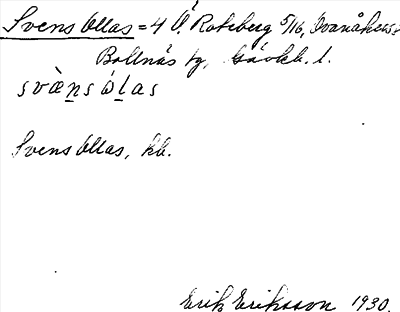 Svens Ollas = 4 Ö. Roteberg 5/16, Svanåkers
Bollnäs sg, Gävlb. l.
svæ̀n̲s ὼl̲as
Svens Ollas, kb.
Erik Eriksson 1930.